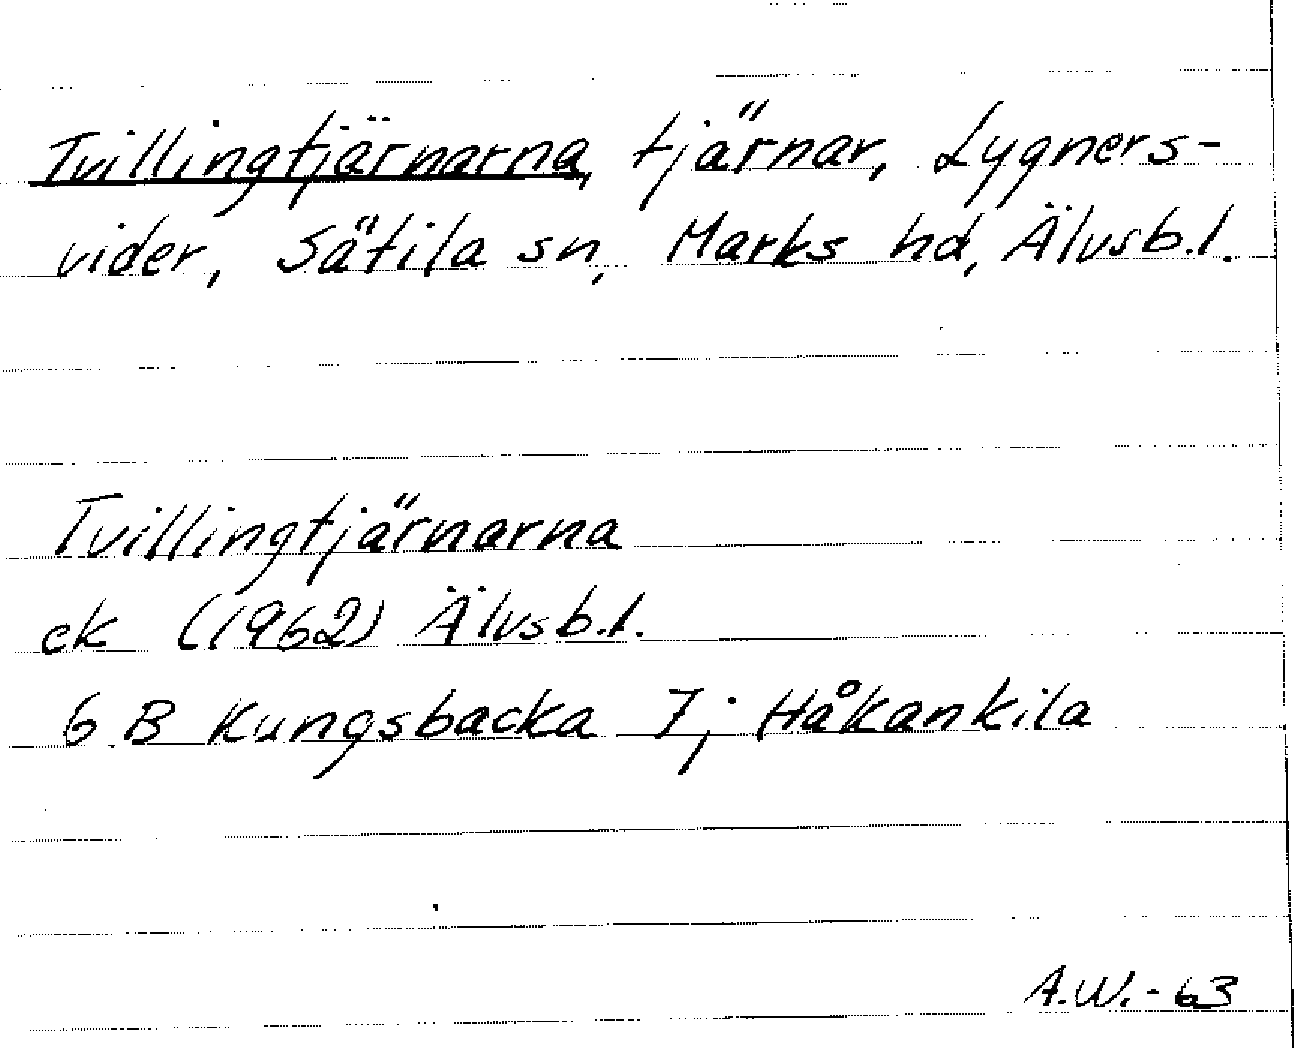 Tvillingtjärnarna, tjärnar, Lygners-
vider, Sätila sn, Marks hd, Älvsb.l.
Tvillingtjärnarna
ek (1962) Älvsb.l.
6 B Kungsbacka 7j Håkankila
A.W.-63